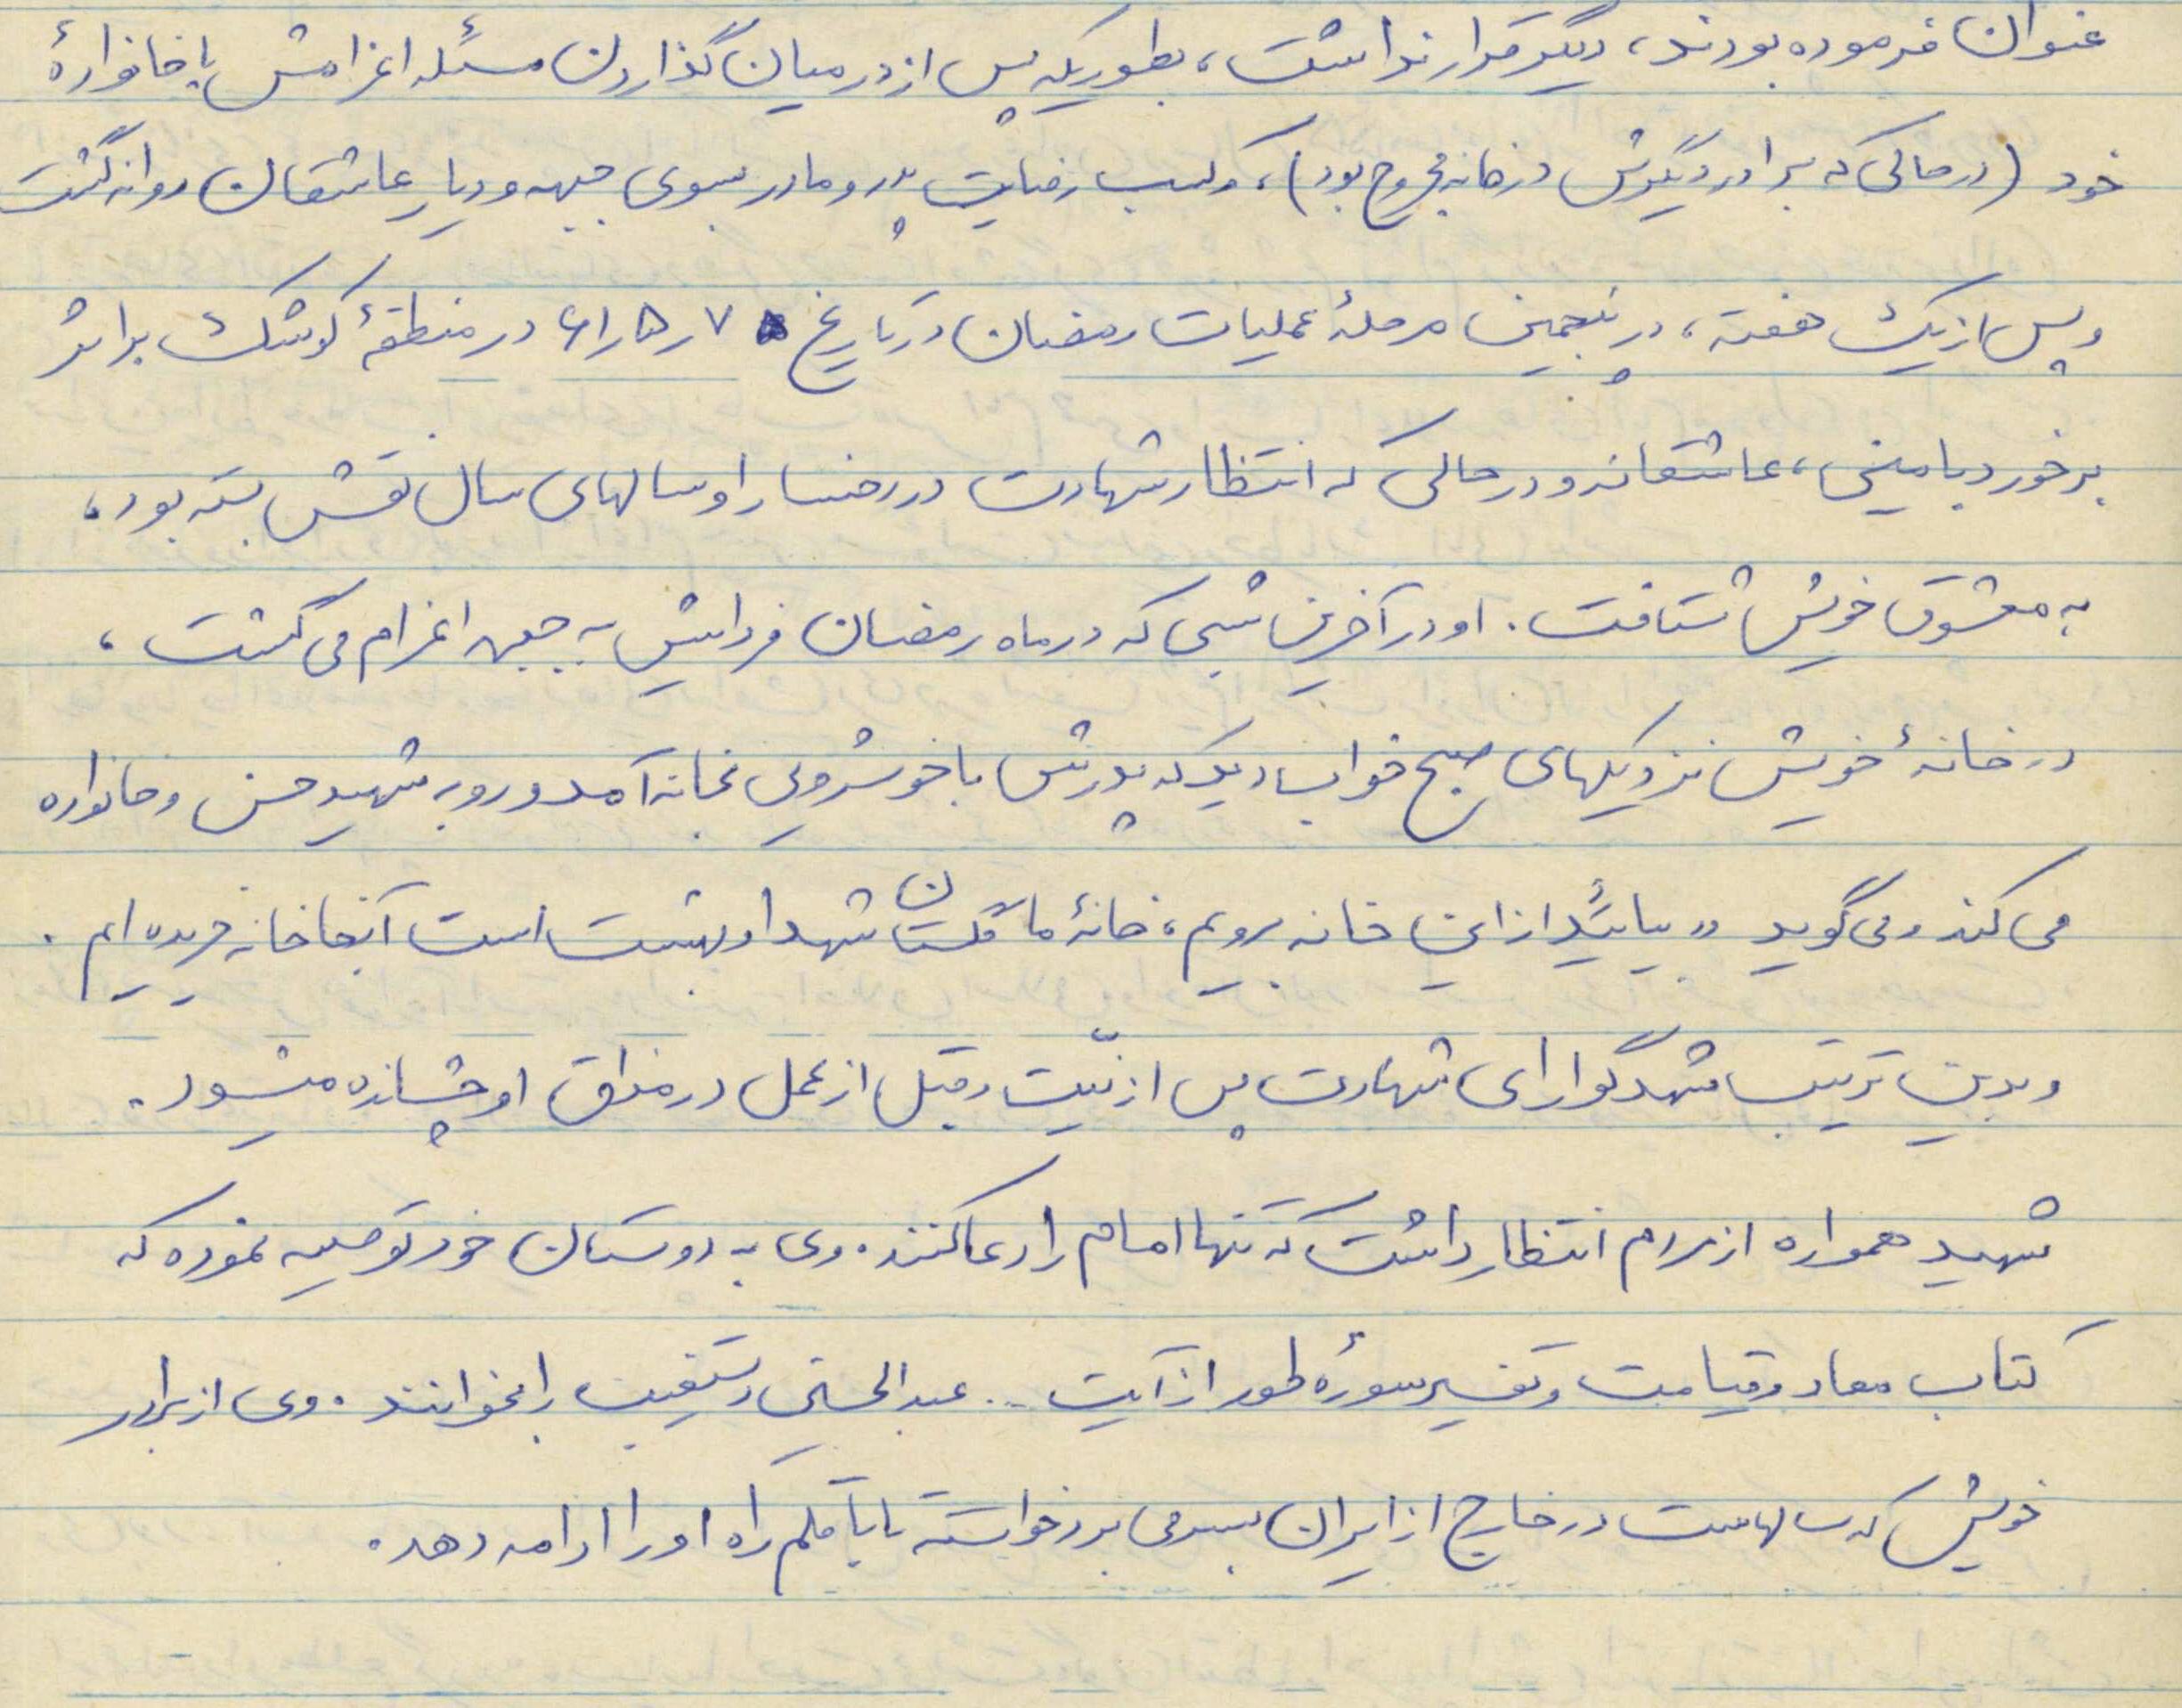 عنوان فرموده بودند، دیگر قرار نداشت، بطوریکه پس از در میان گذاردن مسئله اعزامش با خانوادهٔ
خود (در حالی که برادر دیگرش در خانه مجروح بود)، و کسب رضایت پدر و مادر بسوی جبهه و دیارِ عاشقان روانه گشت
و پس از یک هفته، در پنجمین مرحلهٔ عملیات رمضان در تاریخ ۷ ر۵ ر۶۱ در منطقهٔ کوشک بر اثر
برخورد با مین، عاشقانه و در حالی که انتظار شهادت در رخسار او سالهای سال نقش بسته بود،
به معشوق خویش شتافت. او در آخرین شبی که در ماه رمضان فردایش به جبهه اعزام می گشت،
در خانهٔ خویش نزدیکهای صبح خواب دید که پدرش با خوشرویی بخانه آمد و رو به شهید حسن و خانواده
می کند و می گوید «بیائید از این خانه برویم، خانهٔ ما گلستان شهدا و بهشت است آنجا خانه خریده ایم.
و بدین ترتیب شهد گوارای شهادت پس از نیّت و قبل از عمل در مذاق او چشانده میشود.
شهید همواره از مردم انتظار داشت که تنها امام را دعا کنند. وی به دوستان خود توصیه نموده که
کتاب معاد و قیامت و تفسیر سورهٔ طور از آیت .. عبدالحسین دستغیب را بخوانند. وی از برادر
خویش که سالهاست در خارج از ایران بسر می برد خواسته تا با قلم راه او را ادامه دهد.